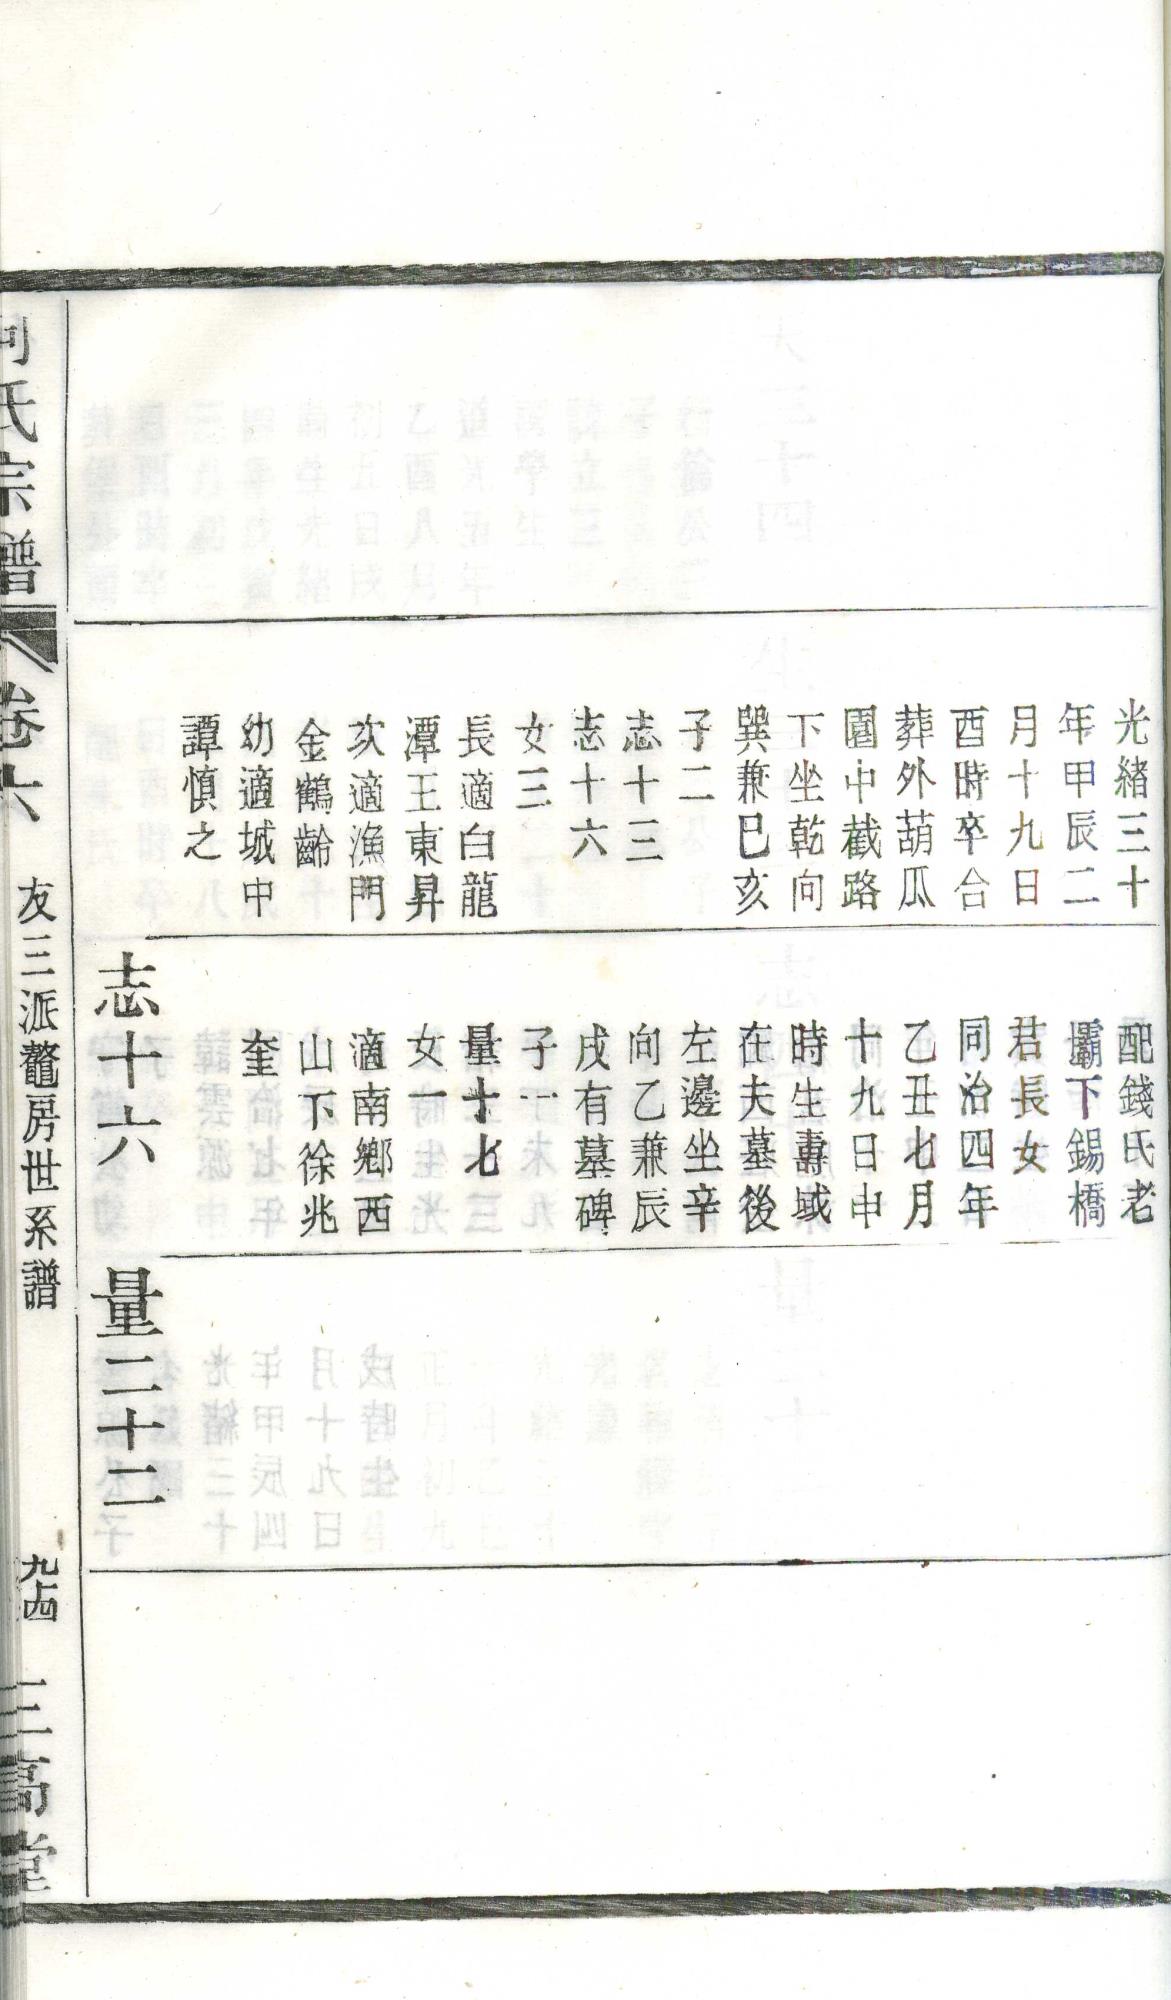 光緒三十
年甲辰二
月十九日
酉時卒合
葬外葫瓜
園中截路
下坐乾向
巽兼巳亥
子二
志十三
志十六
女三
長適白龍
潭王東昇
次適漁門
金鶴齡
幼適城中
譚慎之
配錢氏老
壩下錫橋
君長女
同治四年
乙丑七月
十九日申
時生壽域
在夫墓後
左邊坐辛
向乙兼辰
戌有墓碑
子一
量十七
女一
適南鄉西
山下徐兆
奎
志十六
量二十二
何氏宗譜
卷六
友三派鼇房世系譜
九十四
三高堂